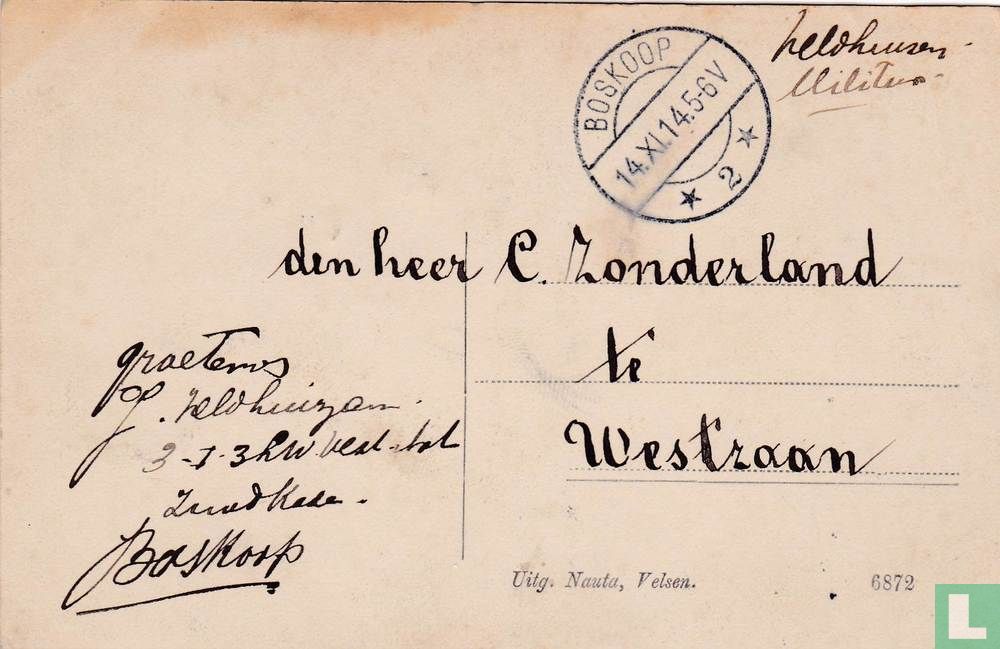 Militair
BOSKOOP
14.XI.14.5-6V
2
den heer C. Zonderland
te
Westzaan
groetenis
J. Veldhuizen
3-I-3
Zuidkade.
Boskoop
Uitg. Nauta, Velsen.
6872
L